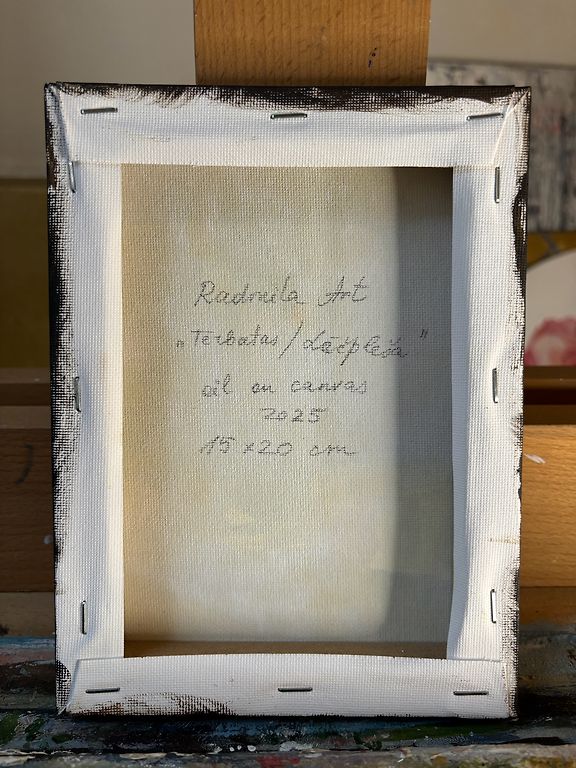 Radmila Art
„Terbatas / Lāčplēša"
oil on canvas
2025
15 x 20 cm